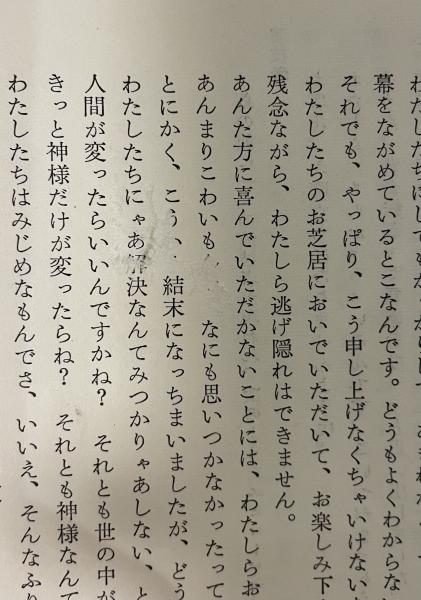 わたしたちにしても
幕をながめているとこなんです。どうもよくわからな
それでも、やっぱり、こう申し上げなくちゃいけない
わたしたちのお芝居においでいただいて、お楽しみ下
残念ながら、わたしら逃げ隠れはできません。
あんた方に喜んでいただかないことには、わたしらお
あんまりこわいも なにも思いつかなかったって
とにかく、こう 結末になっちまいましたが、どう
わたしたちにゃあ解決なんてみつかりゃあしない、と
人間が変ったらいいんですかね? それとも世の中が
きっと神様だけが変ったらね? それとも神様なんて
わたしたちはみじめなもんでさ、いいえ、そんなふり